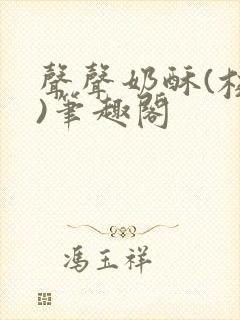 聲聲奶酥(校
)筆趣閣
馮玉祥